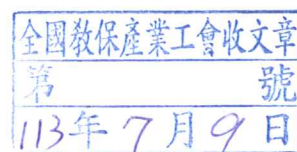 全國教保產業工會收文章
第 號
113年7月9日